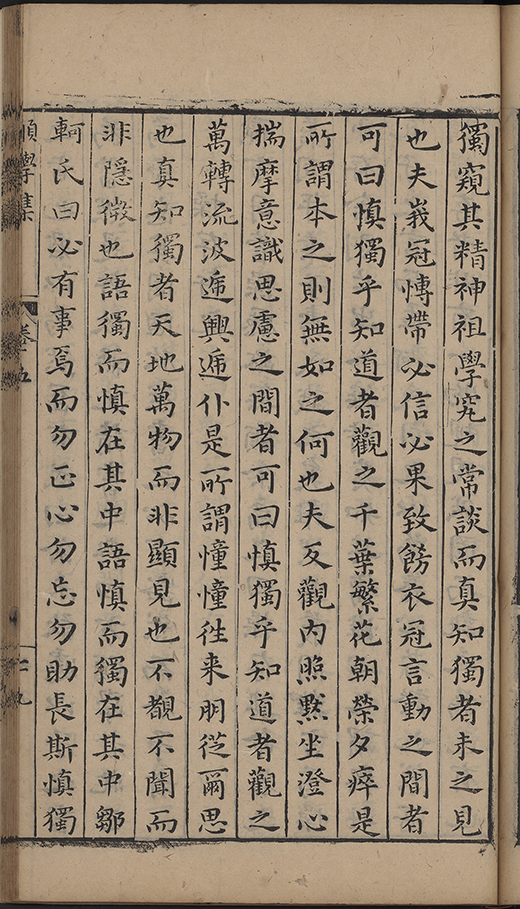 獨窺其精神祖學究之常談而真知獨者未之見
也夫峩冠愽帶必信必果致餝衣冠言動之間者
可曰慎獨乎知道者觀之千葉繁花朝榮夕瘁是
所謂本之則無如之何也夫反觀内照默坐澄心
揣摩意識思慮之間者可曰慎獨乎知道者觀之
萬轉流波遞興遞仆是所謂憧憧徃来朋從爾思
也真知獨者天地萬物而非顯見也不覩不聞而
非隱微也語獨而慎在其中語慎而獨在其中鄒
軻氏曰必有事焉而勿正心勿忘勿助長斯慎獨
願學集
卷五